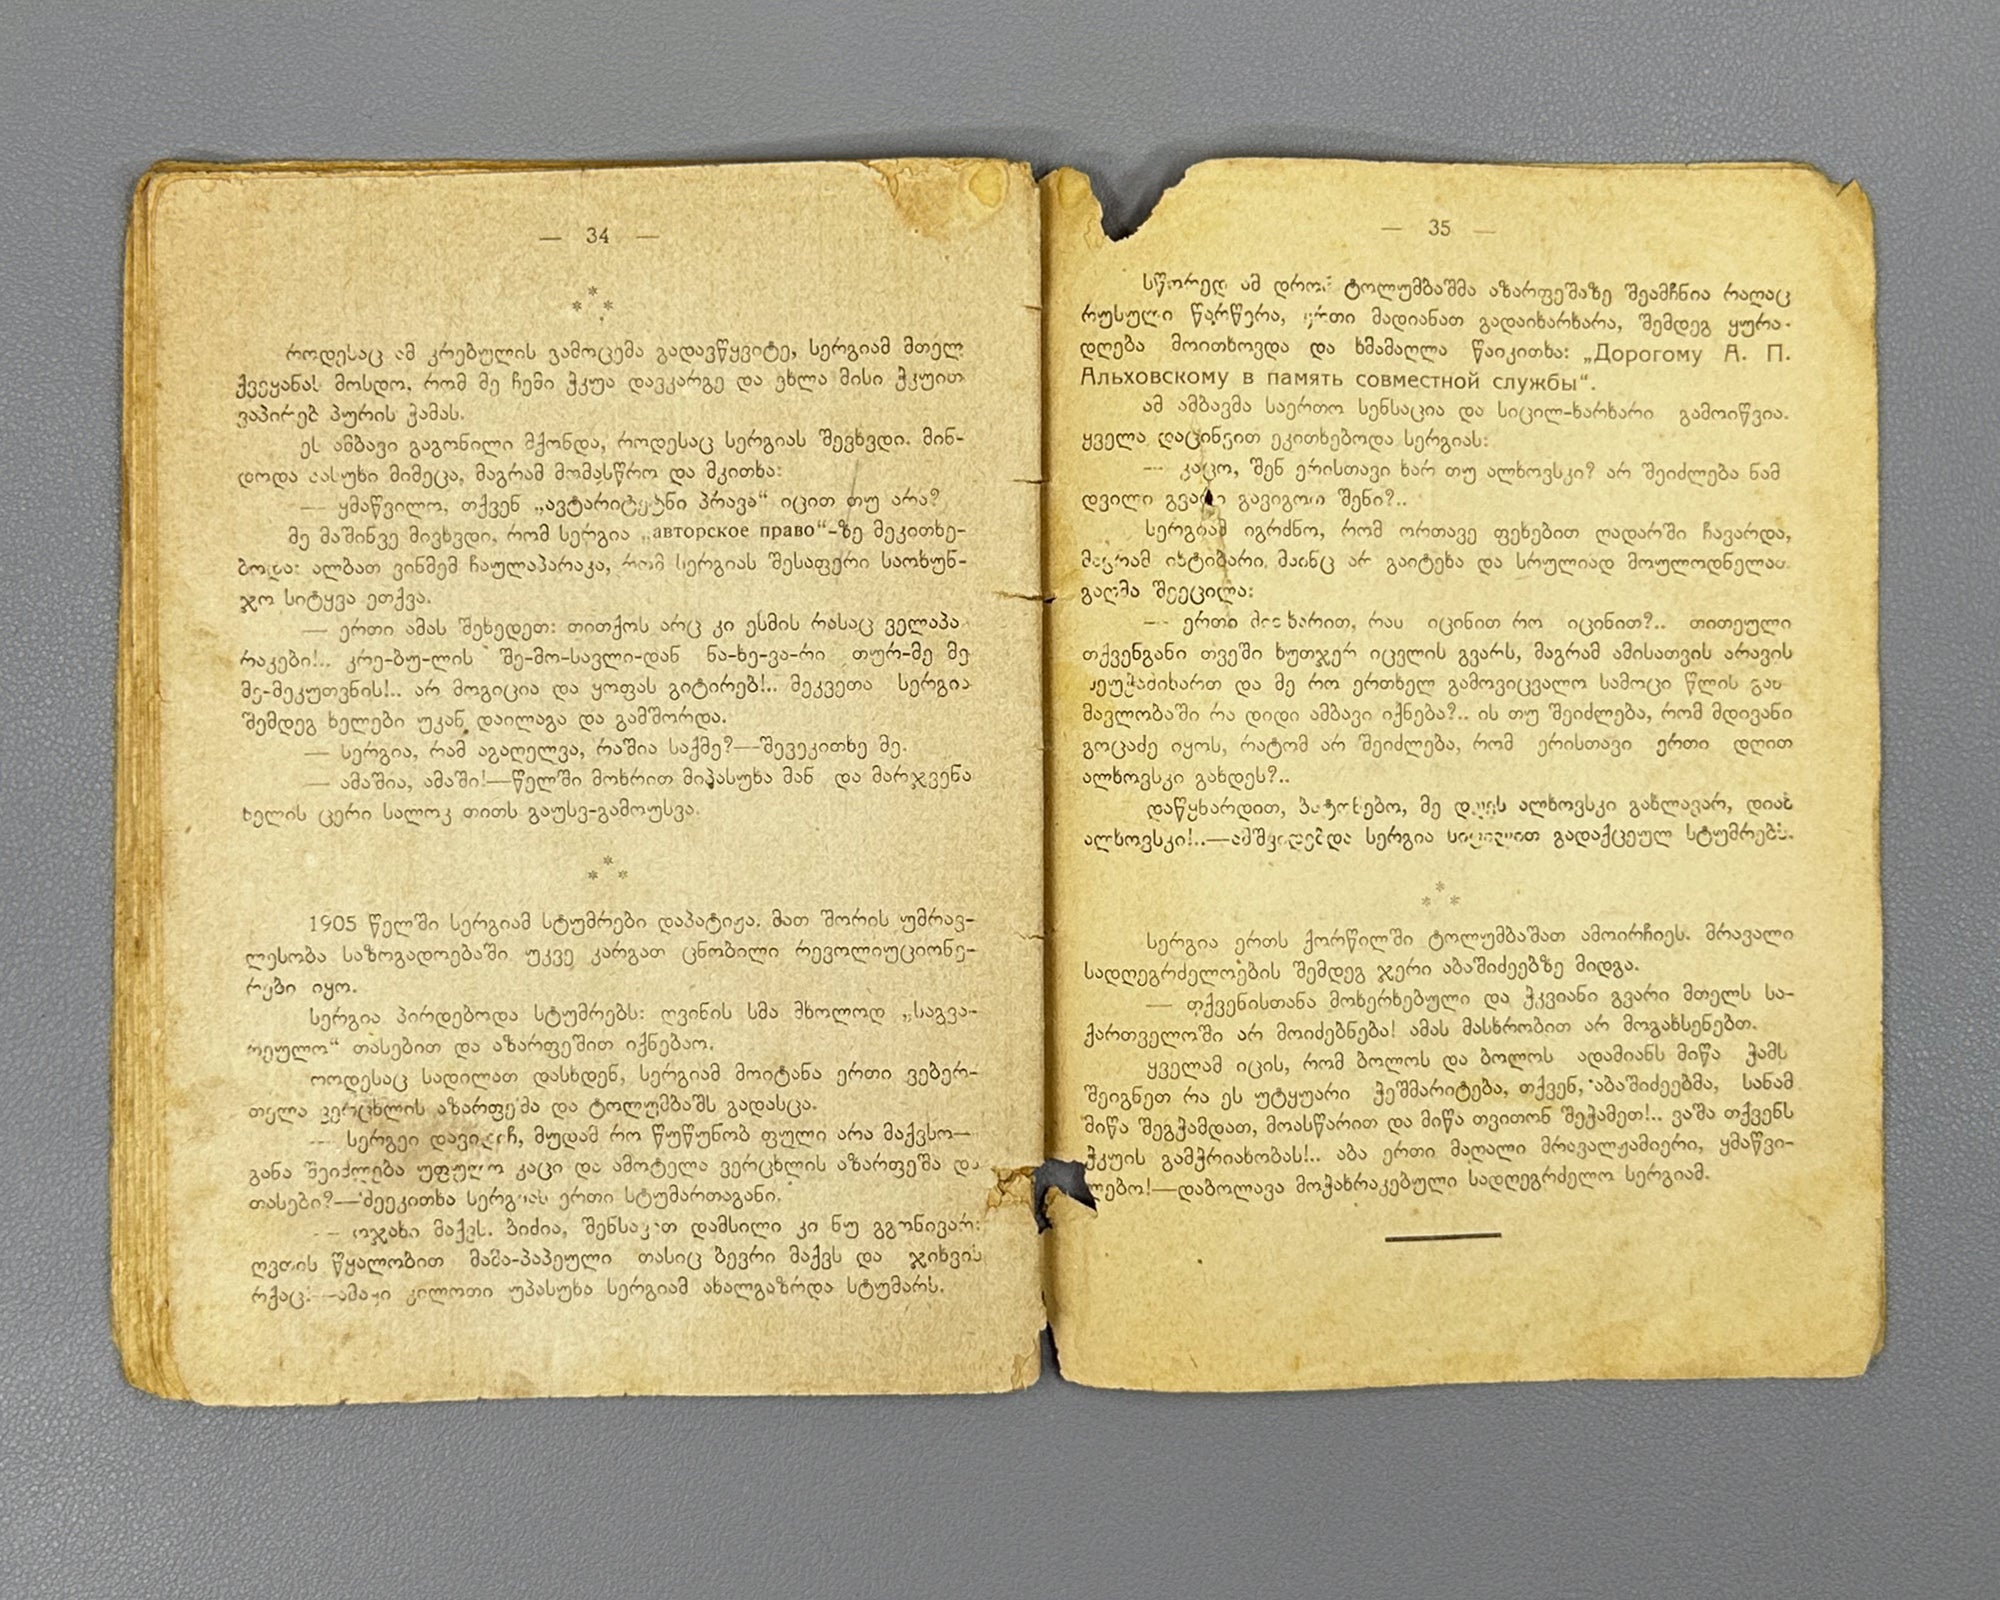 — 34 —
* * *
როდესაც ამ კრებულის გამოცემა გადავწყვიტე, სერგიამ მთელ
ქვეყანას მოსდო, რომ მე ჩემი ჭკუა დავკარგე და ეხლა მისი ჭკუით
ვაპირებ პურის ჭამას.
ეს ამბავი გაგონილი მქონდა, როდესაც სერგიას შევხვდი. მინ-
დოდა პასუხი მიმეცა, მაგრამ მომასწრო და მკითხა:
— ყმაწვილო, თქვენ „ავტარიტეტნი პრავა“ იცით თუ არა?
მე მაშინვე მივხვდი, რომ სერგია „авторское право“-ზე მეკითხე-
ბოდა: ალბათ ვინმემ ჩაულაპარაკა, რომ სერგიას შესაფერი საოხუნ-
ჯო სიტყვა ეთქვა.
— ერთი ამას შეხედეთ: თითქოს არც კი ესმის რასაც ველაპა-
რაკები!.. კრე-ბუ-ლის შე-მო-სავლი-დან ნა-ხე-ვა-რი თურ-მე მე
მე-მეკუთვნის!.. არ მოგიცია და ყოფას გიტირებ!.. მეკვეთა სერგია
შემდეგ ხელები უკან დაილაგა და გამშორდა.
— სერგია, რამ აგაღელვა, რაშია საქმე?—შევეკითხე მე.
— ამაშია, ამაში!—წელში მოხრით მიპასუხა მან და მარჯვენა
ხელის ცერი სალოკ თითს გაუსვ-გამოუსვა.
* * *
1905 წელში სერგიამ სტუმრები დაპატიჟა. მათ შორის უმრავ-
ლესობა საზოგადოებაში უკვე კარგათ ცნობილი რევოლიუციონე-
რები იყო.
სერგია პირდებოდა სტუმრებს: ღვინის სმა მხოლოდ „საგვა-
რეულო“ თასებით და აზარფეშით იქნებაო.
როდესაც სადილათ დასხდენ, სერგიამ მოიტანა ერთი ვებერ-
თელა ვერცხლის აზარფეშა და ტოლუმბაშს გადასცა.
— სერგეი დავიდიჩ, მუდამ რო წუწუნობ ფული არა მაქვსო—
განა შეიძლება უფულო კაცი და ამოტელა ვერცხლის აზარფეშა და
თასები?—შეეკითხა სერგიას ერთი სტუმართაგანი.
— ოჯახი მაქვს. ბიძია, შენსავით დამსილი კი ნუ გგონივარ:
ღვთის წყალობით მამა-პაპეული თასიც ბევრი მაქვს და ჯიხვის
რქაც!—ამაყი კილოთი უპასუხა სერგიამ ახალგაზრდა სტუმარს.
— 35 —
სწორედ ამ დროს ტოლუმბაშმა აზარფეშაზე შეამჩნია რაღაც
რუსული წარწერა, ერთი მადიანათ გადაიხარხარა, შემდეგ ყურა-
დღება მოითხოვდა და ხმამაღლა წაიკითხა: „Дорогому А. П.
Альховскому в память совместной службы“.
ამ ამბავმა საერთო სენსაცია და სიცილ-ხარხარი გამოიწვია.
ყველა დაცინვით ეკითხებოდა სერგიას:
— კაცო, შენ ერისთავი ხარ თუ ალხოვსკი? არ შეიძლება ნამ
დვილი გვარი გავიგოთ შენი?..
სერგიამ იგრძნო, რომ ორთავე ფეხებით ღადარში ჩავარდა,
მაგრამ იხტიბარი მაინც არ გაიტეხა და სრულიად მოულოდნელათ
გაღმა შეეცილა:
— ერთი მიხარით, რას იცინით რო იცინით?.. თითეული
თქვენგანი თვეში ხუთჯერ იცვლის გვარს, მაგრამ ამისათვის არავის
და მე რო ერთხელ გამოვიცვალო სამოცი წლის გან
მავლობაში რა დიდი ამბავი იქნება?.. ის თუ შეიძლება, რომ მდივანი
გოცაძე იყოს, რატომ არ შეიძლება, რომ ერისთავი ერთი დღით
ალხოვსკი გახდეს?..
დაწყნარდით, ბატონებო, მე დღეს ალხოვსკი გახლავარ, დიახ
ალხოვსკი!..—ამშვიდებდა სერგია სიცილით გადაქცეულ სტუმრებს.
* * *
სერგია ერთს ქორწილში ტოლუმბაშათ ამოირჩიეს. მრავალი
სადღეგრძელოების შემდეგ ჯერი აბაშიძეებზე მიდგა.
— თქვენისთანა მოხერხებული და ჭკვიანი გვარი მთელს სა-
ქართველოში არ მოიძებნება! ამას მასხრობით არ მოგახსენებთ.
ყველამ იცის, რომ ბოლოს და ბოლოს ადამიანს მიწა ჭამს
შეიგნეთ რა ეს უტყუარი ჭეშმარიტება, თქვენ, აბაშიძეებმა, სანამ
მიწა შეგჭამდათ, მოასწარით და მიწა თვითონ შეჭამეთ!.. ვაშა თქვენს
ჭკუის გამჭრიახობას!.. აბა ერთი მაღალი მრავალჟამიერი, ყმაწვი-
ლებო!—დაბოლავა მოჭახრაკებული სადღეგრძელო სერგიამ.